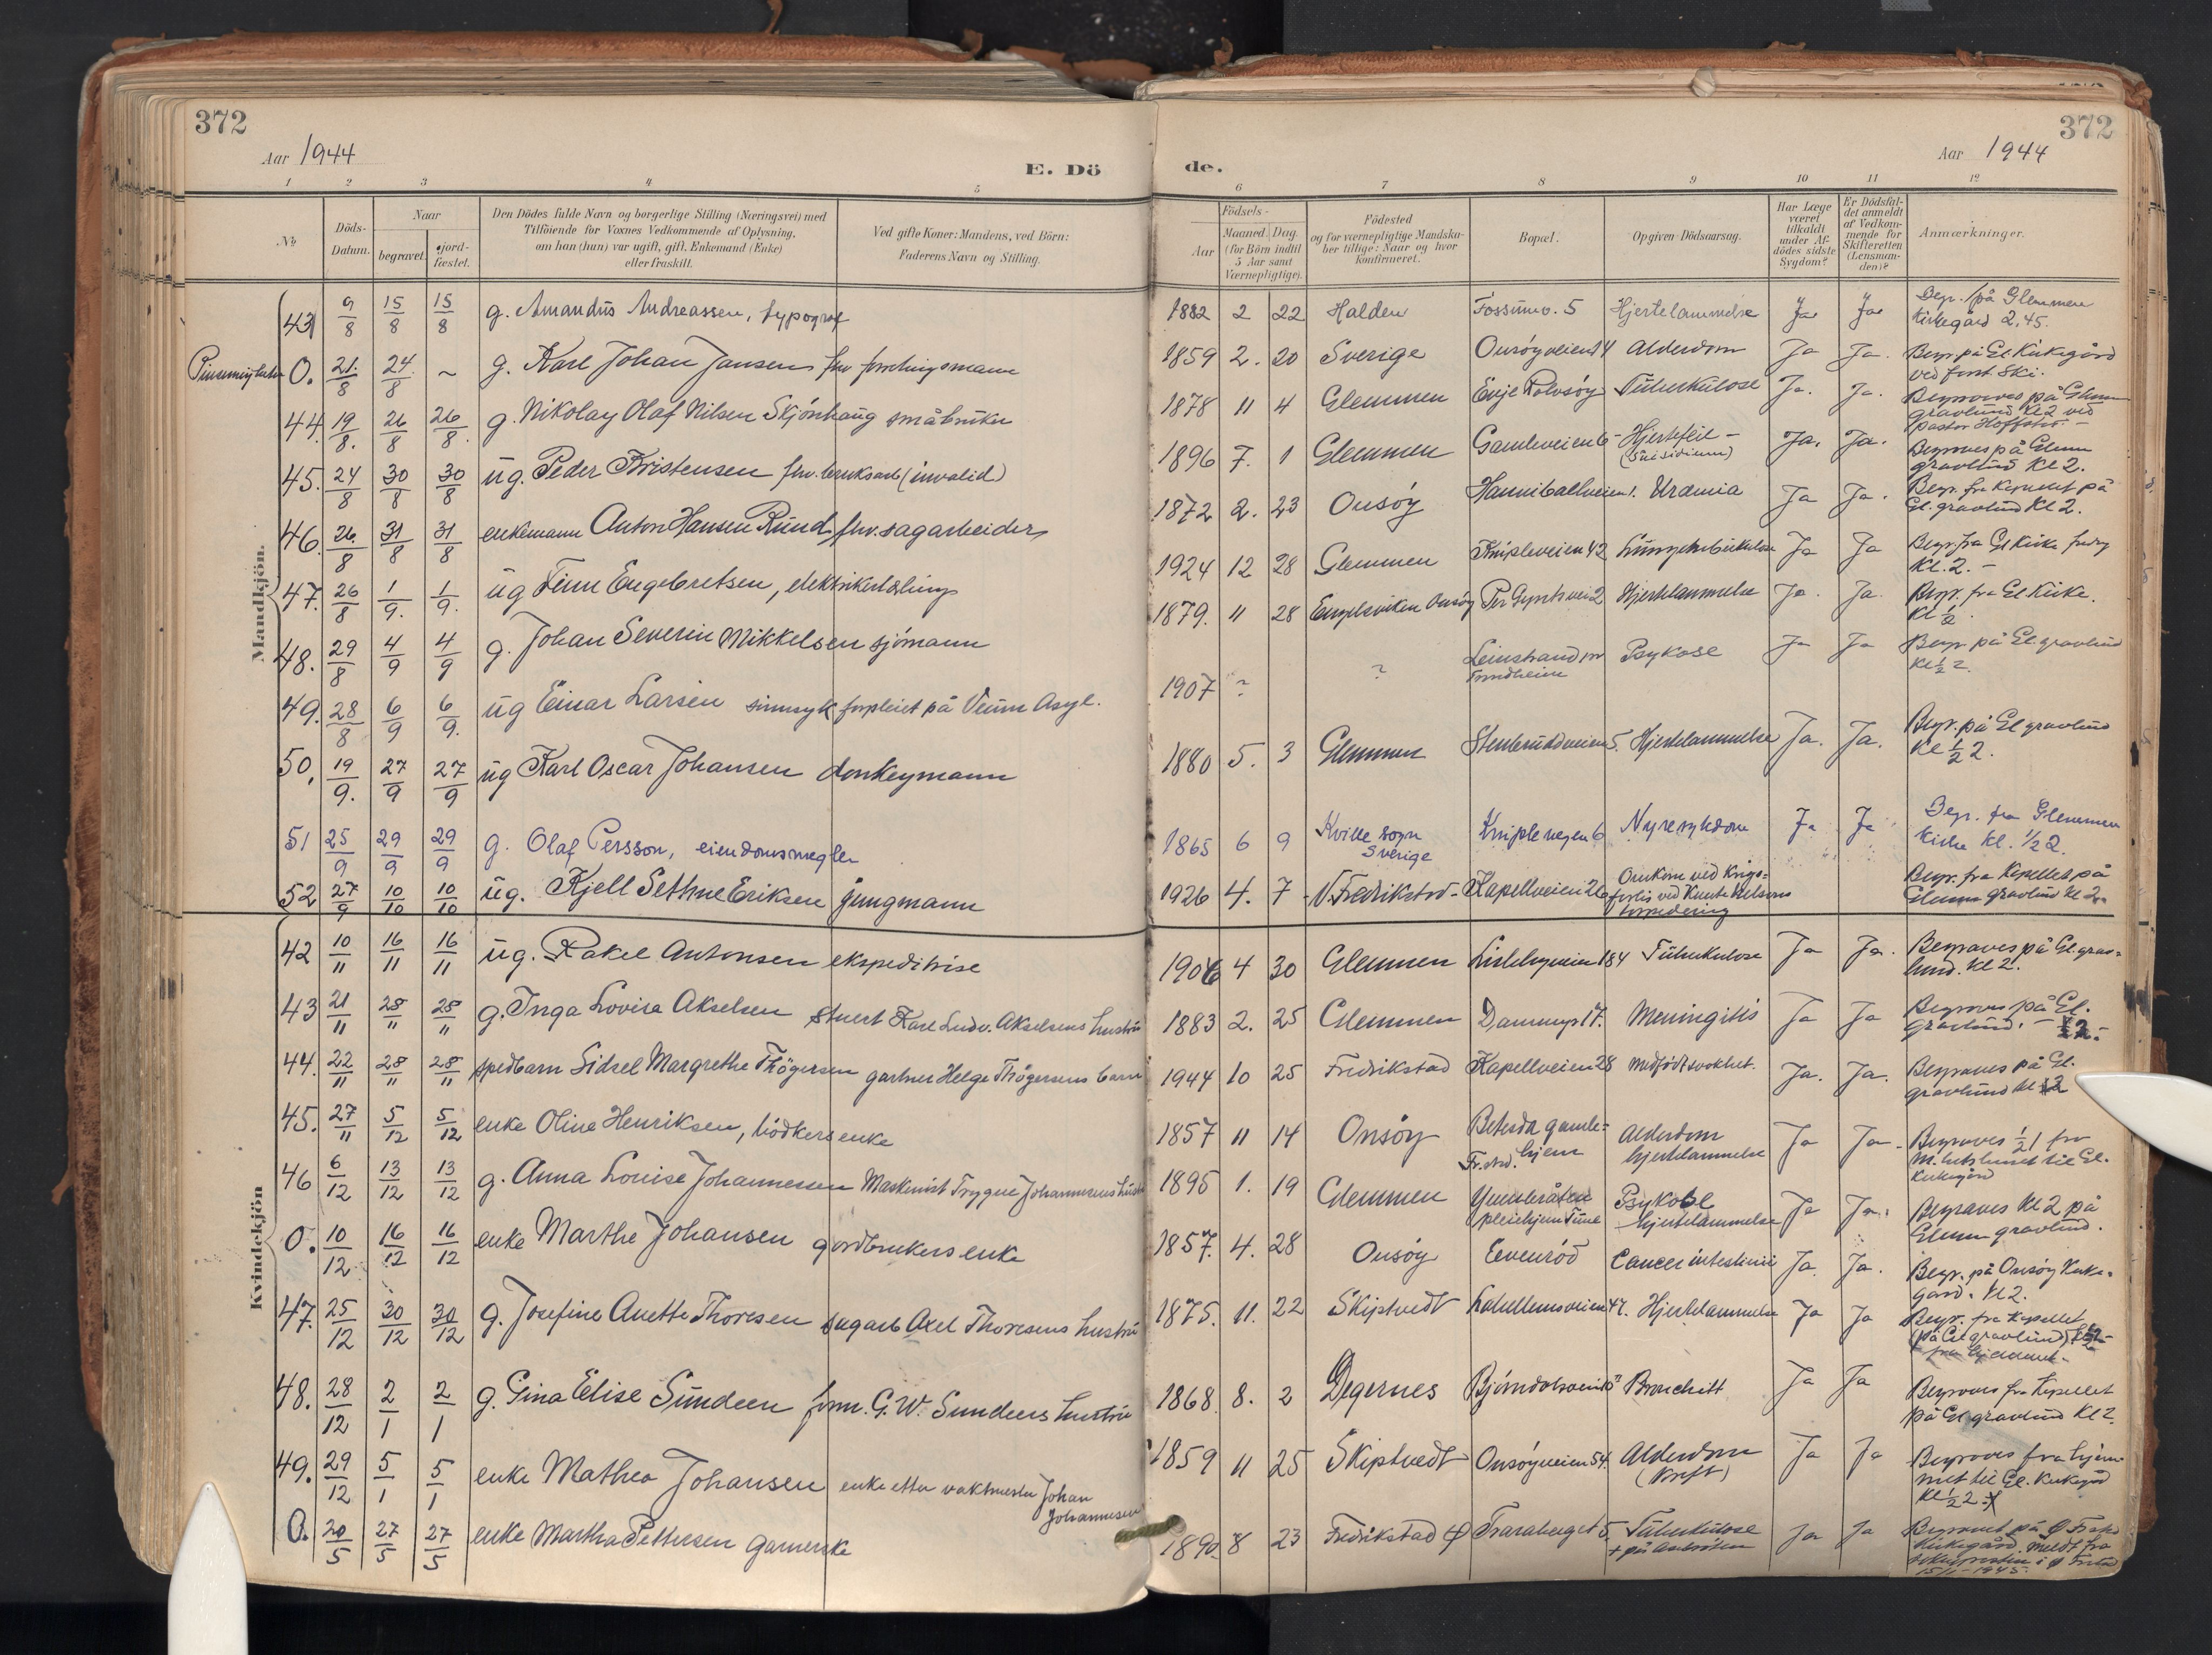 372
Aar 1944
E. Dö
1 2 3 4 5
№
Döds-
Datum.
Naar
begravet.
jord-
fæstet.
Den Dödes fulde Navn og borgerlige Stilling (Næringsvei) med
Tilföiende for Voxnes Vedkommende af Oplysning,
om han (hun) var ugift, gift, Enkemand (Enke)
eller fraskilt.
Ved gifte Koner: Mandens, ved Börn:
Faderens Navn og Stilling.
Mandkjön.
43 9/8 15/8 15/8 g. Amandus Andreassen, typograf
0. 21./8 24./8 ~ g. Karl Johan Jansen fhv forretningsmann
44. 19/8. 26/8 26/8. g. Nikolay Olaf Nilsen Skjónhaug småbruker
45. 24/8 30/8 30/8 ug. Peder Kristensen fhv. bruksarb (invalid)
46. 26./8 31/8 31/8 enkemann Anton Hansen Rund fhv. sagarbeider
47. 26/8 1/9. 1/9. ug Finn Engebretsen, elektrikerlærling
48. 29/8 4/9 4/9 g. Johan Severin Mikkelsen sjómann
49. 28/8 6/9 6/9. ug Einar Larsen sinnsyk forpleiet på Veum Asyl.
50. 19/9. 27/9 27/9 ug Karl Oscar Johansen donkeymann
51 25/9 29/9 29/9 g. Olaf Persson, eiendomsmegler
52 27/9 10/10 10/10 ug. Kjell Sethne Eriksen jungmann
Kvindekjön
42 10/11 16/11 16/11 ug. Rakel Antonsen ekspeditrise
43 21/11 28/11 28/11 g. Inga Lovise Akselsen stuert Karl Ludv. Akselsens hustru
44. 22/11 28/11 28/11 spedbarn Sidsel Margrethe Thögersen gartner Helge Thögersens barn
45. 27/11 5/12 5/12 enke Oline Henriksen, bödkers enke
46 6/12 13/12 13/12 g. Anna Louise Johannessen Maskinist Trygve Johannesens hustr
0. 10/12 16/12 16/12 enke Marthe Johansen gardbrukers enke
47. 25/12 30/12 30/12 g. Josefine Anette Thoresen sagarb Axel Thoresens hustru
48. 28/12 2/1 2/1 g. Gina Elise Sundeen form. G. W. Sundeens hustru
49. 29/12 5/1 5/1 enke Mathea Johansen enke etter vaktmester Johan
Johannesen
0. 20/5 27/5 27/5 enke Martha Pettersen
372
Aar 1944
de.
6 7 8 9 10 11 12
Födsels-
Aar
Maaned. Dag.
(for Börn indtil
5 Aar samt
Værnepligtige).
Födested
og for værnepligtige Mandska-
ber tillige: Naar og hvor
Konfirmeret.
Bopæl.
Opgiven Dödsaarsag.
Har Læge
været
tilkaldt
under Af-
dödes sidste
Sygdom?
Er Dödsfal-
det anmeldt
af Vedkom-
mende for
Skifteretten
(Lensman-
den)?
Anmærkninger.
1882 2 22 Halden Fossumv. 5 Hjertelammelse Ja Ja Begr. på Glemmen
kirkegård 2,45.
1859 2. 20 Sverige Onsóyveien 14 Alderdom Ja Ja. Begr på Gl Kirkegård
ved forst. Ski.
1878 11 4 Glemmen Evje Rolvsóy Tuberkulose Ja. Ja. Begraves på Glem
gravlund kl 2 ved
pastor Hoffstr. -
1896 7. 1 Glemmen Gamleveien 6 - Hjertefeil - Ja. Ja. Begraves på Glem
(Suicidium) gravlund Kl 2.
1872 2. 23 Onsóy Uræmia Ja Ja. Begr. fra Kapellet på
Gl. gravlund Kl 2.
1924 12 28 Glemmen Knipleveien 42 Lungetuberkulose Ja Ja Begr. fra Gl Kirke
Kl. 2. -
1879. 11 28 Engelsviken Onsóy Per Gyntsvei 2 Hjertelammelse Ja. Ja. Begr. fra Gl Kirke.
1907 ? ? Leinstrand pr Psykose Ja Ja Begr på Gl. gravlund
Trondheim Kl ½ 2.
1880 5. 3 Glemmen Stenbruddveien 5. Hjertelammelse Ja. Ja. Begr. på Gl gravlund
Kl ½ 2.
1865 6 9 Kville sogn Kniplevegen 6 Nyresykdom Ja Ja Begr. fra Glemmen
Sverige kirke kl. ½ 2.
1926 4. 7 - V. Fredrikstad - Kapellveien 26 Omkom ved krigs- Begr. fra Kapellet på
forlis ved Knute Nelsons Glemm gravlund kl 2.
torpedering
1906 4 30 Glemmen Lislebyveien 184 Tuberkulose Ja Ja. Begraves på Gl. grav-
lund. Kl 2.
1883 2. 25 Glemmen Dammyr 17. Meningitis Ja Ja Begraves på Gl.
gravlund. -
1944 10 25 Fredrikstad Kapellveien 28 Medfödt svakhet. Ja. Ja. Begraves på Gl.
gravlund kl 2
1857 11 14 Onsóy Betesda gamle- Alderdom Ja Ja - Begraves ½ 1 fra
Fr.stad. hjem hjertelammelse M. hetshuset til Gl.
Kirkegård
1895 1. 19 Glemmen Psykose Ja Ja. Begraves Kl 2 på
pleiehjem Tune hjertelammelse Glemm gravlund.
1857. 4. 28 Onsóy Evenröd Cancer intestinii Ja Ja. Begr. på Onsöy Kirke-
gård. Kl 2.
1875. 11. 22 Skiptvedt Hjertelammelse Ja Ja Begr. fra Kapellet
(på Gl gravlund)
1868 8. 2 Degernes Bronchitt Ja Ja Begraves fra Kapellet
på Gl gravlund Kl 2.
1859 11 25 Skiptvedt Onsóyveien 54. Alderdom Ja Ja Begraves fra hjem-
(Kreft) met til Gl. Kirkegård
Kl ½ 2
1890. 8 23 Fredrikstad Ø Traraberget 5. Tuberkulose Ja Ja Begravet på Ø Frstad
Kirkegård. Meldt fra
soknepresten i Ø Frstad
15/1 - 1945.